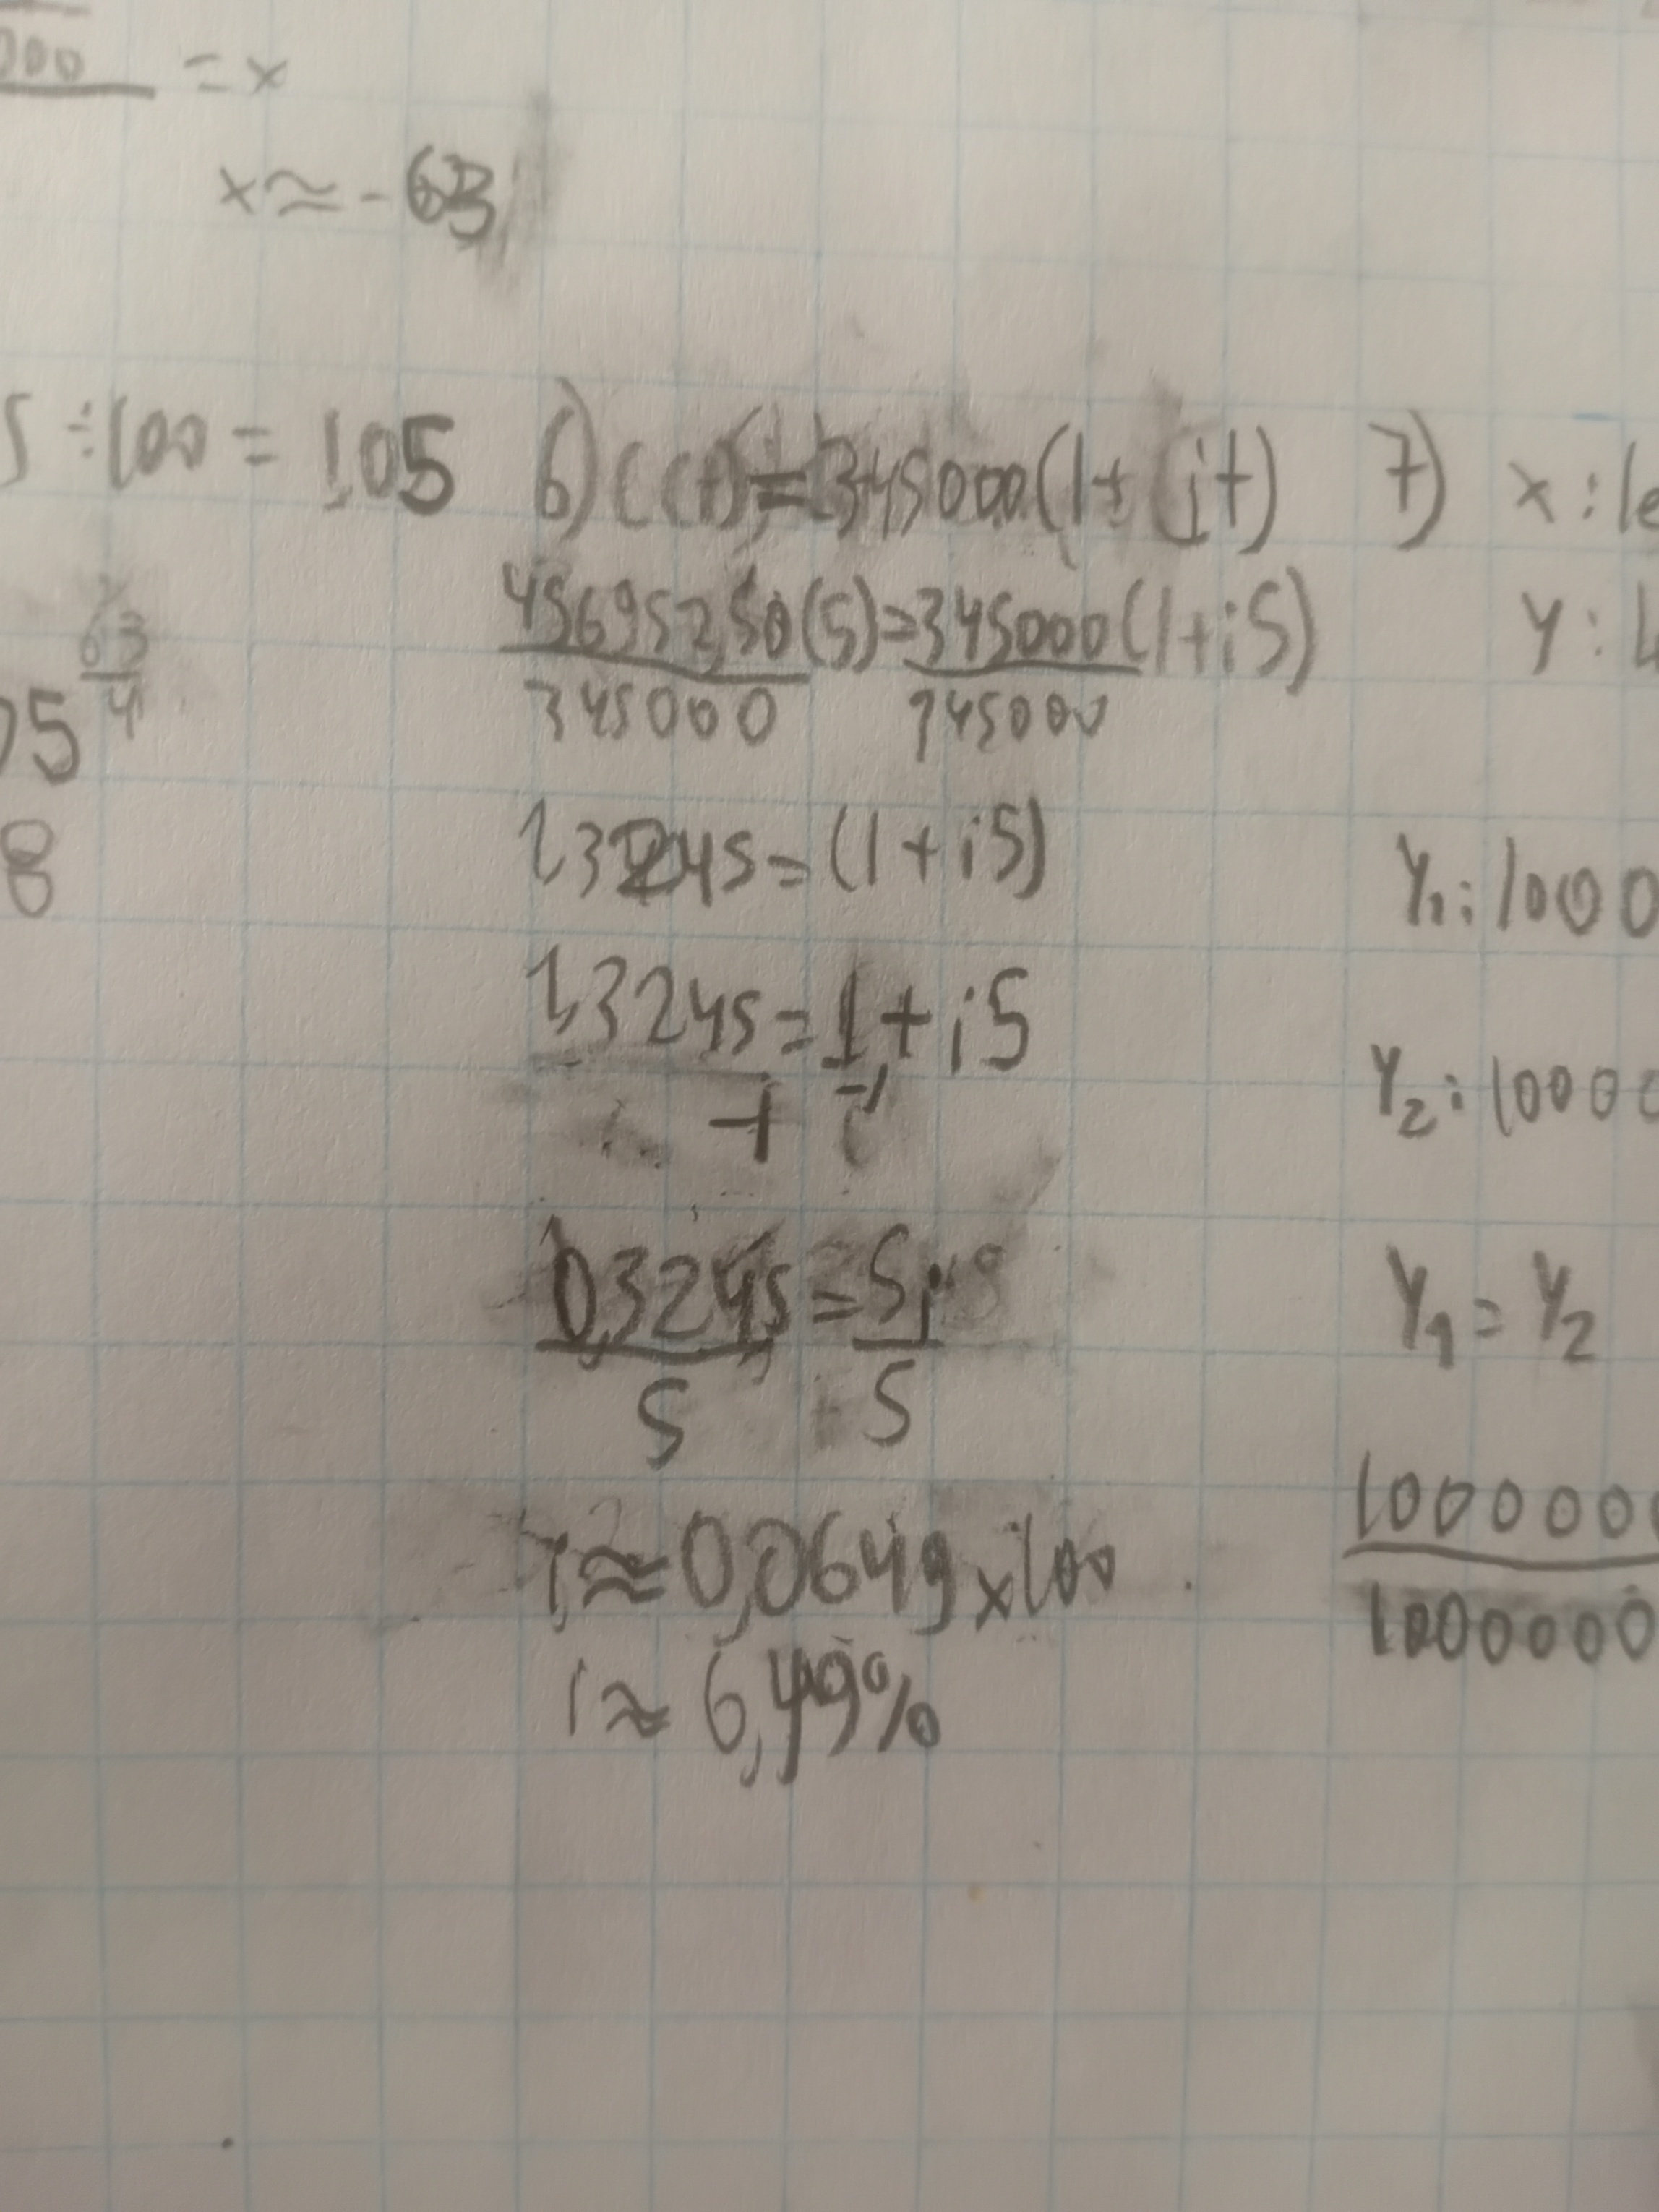 000 = x
x ≈ -63
5 ÷100 = 1,05
05^63/4
8
6) C(t) = 345000(1 + (it)
456952,50(5) = 345000(1+i5)
345000 345000
1,3245 = (1 + i5)
1,3245 = 1 + i5
-1 -1
0,3245 = 5i
5 5
i ≈ 0,0649 x100
i ≈ 6,49%
7) x : le
y :
Y1 : 1000
Y2 : 10000
Y1 = Y2
1000000
1000000